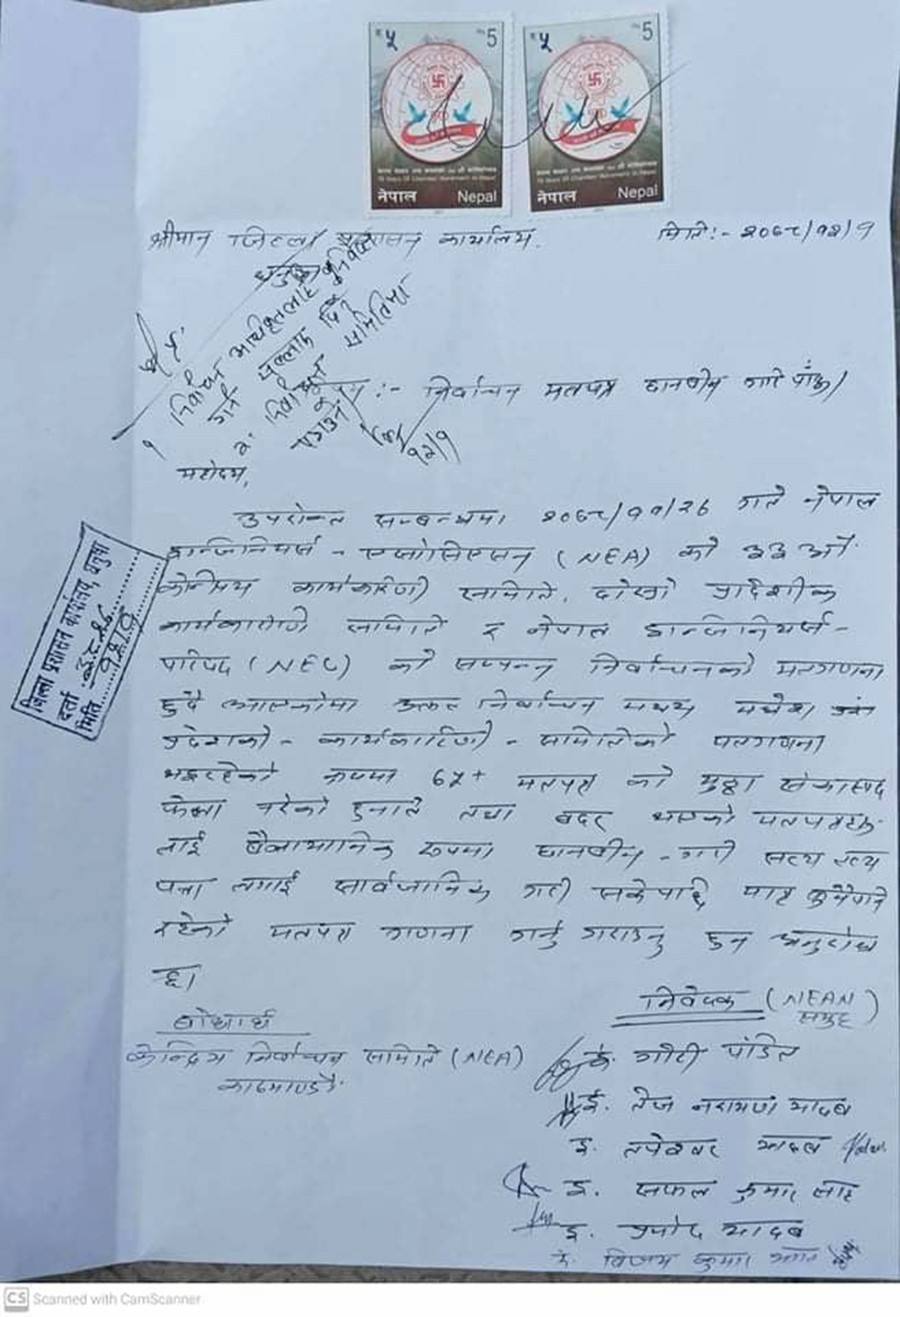 ५ 5
५ 5
नेपाल Nepal
नेपाल Nepal
श्रीमान जिल्ला प्रशासन कार्यालय. मिति:- २०७८/१२/१
धनुषा
१ निर्वाचन अधिकृतलाई
गर्न पठाउने
२. समितिमा
१२/१
विषय:- निर्वाचन मतपत्र छानवीन गरि पाँऊ।
महोदय,
उपरोक्त सम्बन्धमा २०७८/११/२८ गते नेपाल
इन्जिनियर्स - एसोसिएसन (NEA) को ३३औं
केन्द्रिय कार्यकारिणी समिति, दोस्रो प्रादेशीक
कार्यकारिणी समिति र नेपाल इन्जिनियर्स-
परिषद (NEC) को सम्पन्न निर्वाचनको मतगणना
हुदै आएकोमा उक्त निर्वाचन मध्य मधेश
प्रदेशको - कार्यकारिणी - समितिको मतगणना
भइरहेको क्रममा मतपत्र को मुठ्ठा शंकास्पद
फेला परेको हुनाले तथा बदर भएको मतपत्रहरु
लाई वैज्ञानिक रुपमा छानवीन - गरी सत्य तथ्य
पत्ता लगाई सार्वजानिक गरी सकेपछि मात्र
रहेको मतपत्र गणना गर्नु गराउनु हुन अनुरोध
छ।
जिल्ला प्रशासन कार्यालय, धनुषा
दर्ता
मिति
बोधार्थ
केन्द्रिय निर्वाचन समिति (NEA)
काठमाण्डौ
निवेदक (NEAN)
समुह
ई. गौरी पंडित
ई. तेज नारायण यादव
ई. तपेश्वर यादव
ई. सफल कुमार साह
ई. प्रमोद यादव
ई. विजय कुमार
CS Scanned with CamScanner